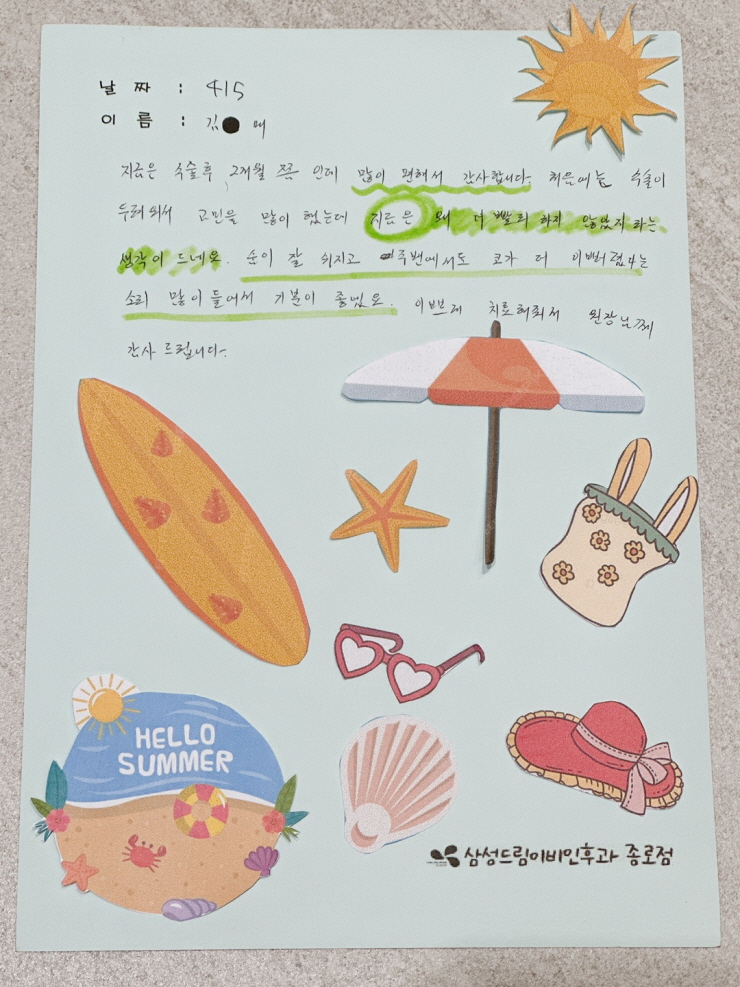 날 짜 : 4/5
이 름 : 김 매
지금은 수술후 2개월 쯤 인데 많이 편해서 감사합니다. 처음에는 수술이
두려워서 고민을 많이 했는데 지금은 왜 더 빨리 하지 않았지 하는
생각이 드네요. 숨이 잘 쉬지고 주변에서도 코가 더 이뻐졌다는
소리 많이 들어서 기분이 좋네요. 이쁘게 치료해줘서 원장님께
감사 드립니다.
HELLO
SUMMER
삼성드림이비인후과 종로점